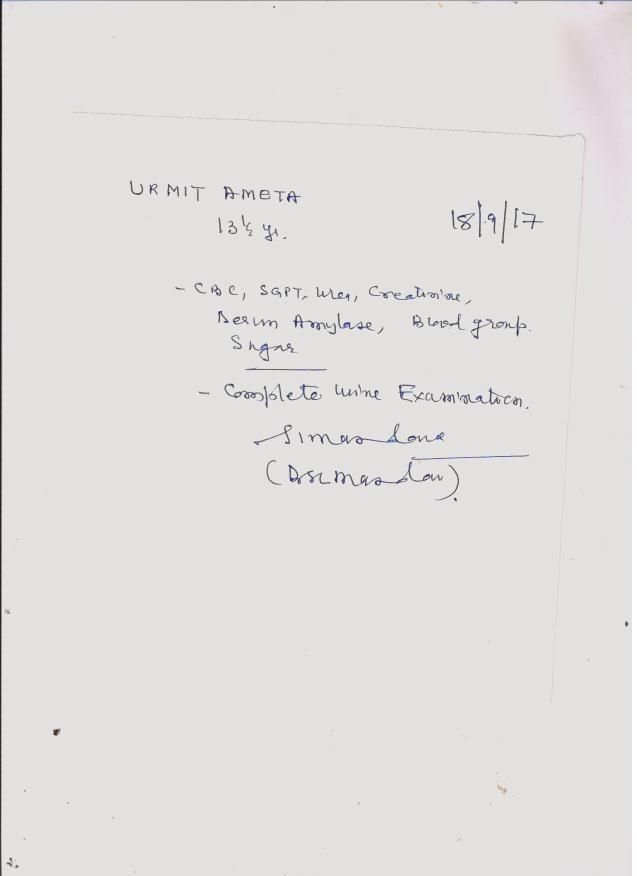 URMIT AMETA
13½ yr.
18/9/17
- CBC, SGPT, Urea, Creatinine,
Serum Amylase, Blood group.
Sugar
- Complete Urine Examination.